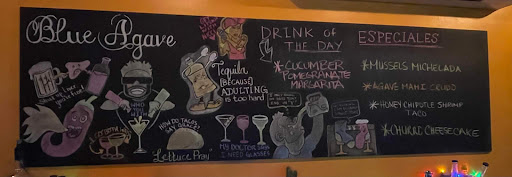 Blue Agave
Tequila
[BECAUSE]
ADULTING
is too hard
DRINK OF
THE DAY
*CUCUMBER
POMEGRANATE
MARGARITA
ESPECIALES
*MUSSELS MICHELADA
*AGAVE MAHI CRUDO
*HONEY CHIPOTLE SHRIMP
TACO
*CHURRO CHEESECAKE
HOW DO TACOS
SAY GRACE?
Lettuce Pray
MY DOCTOR SAYS
I NEED GLASSES